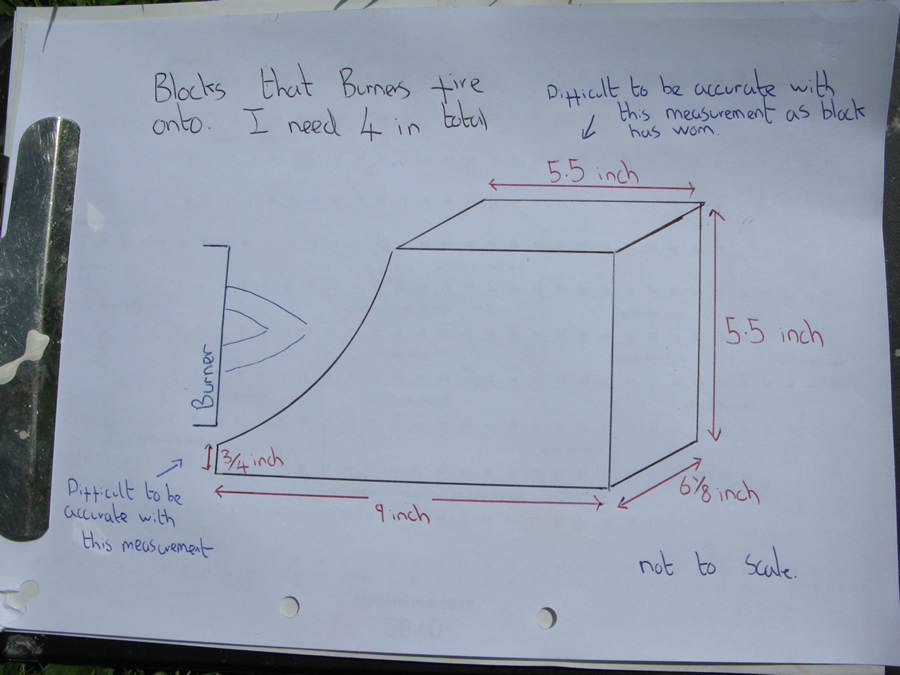 Blocks that Burners fire
onto. I need 4 in total
Difficult to be accurate with
this measurement as block
has worn.
5.5 inch
Burner
5.5 inch
3/4 inch
6 1/8 inch
9 inch
Difficult to be
accurate with
this measurement
not to scale.